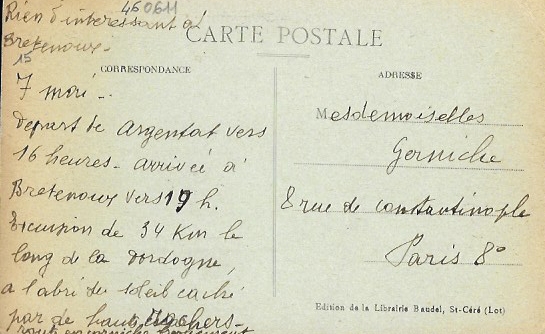 460611
Rien d'interessant à
Bretenoux.
15
CARTE POSTALE
CORRESPONDANCE
7 mai -
Depart de Argentat vers
16 heures - arrivée à
Bretenoux vers 19 h.
Excursion de 34 Km le
long de la Dordogne,
a l'abri du soleil caché
par de hauts rochers -
ADRESSE
Mesdemoiselles
Gerniche
8 rue de Constantinople
Paris 8°
Edition de la Librairie Baudel, St-Céré (Lot)